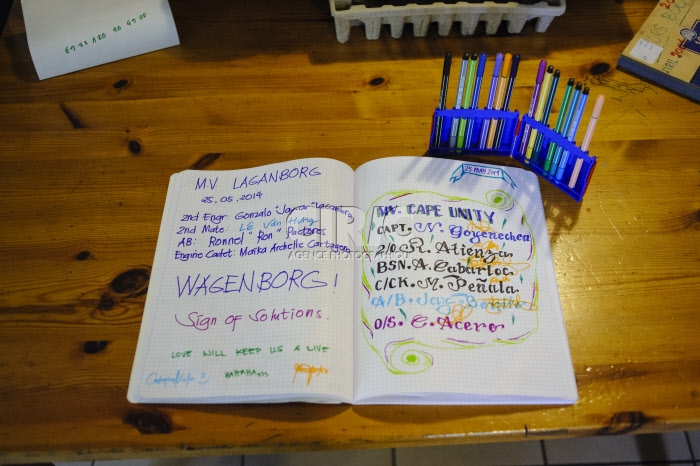 MV LAGANBORG
25.05.2014
2nd Engr: Gonzalo "Jaycor" Lacanaria
2nd Mate: Lê Văn Hưng
AB: Ronnel "Ron" Pastores
Engine Cadet: Marka Archelle Cartagena
WAGENBORG!
Sign of Solutions.
LOVE WILL KEEP US A LIVE
HAHAHA
25 MAY 2014
MV. CAPE UNITY
CAPT. N. Goyenechea
2/O. R. Atienza
BSN. A. Cabarloc
C/CK. M. Peñula
A/B.
O/S. C. Acero
AGENCE PHOTOGRAPHIQUE